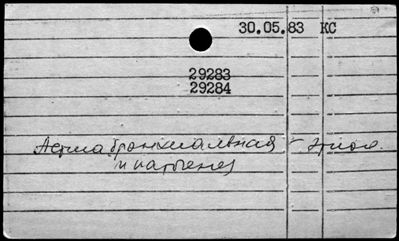 30.05.83 КС
29283
29284
Астма бронхиальная - этиол.
и патогенез